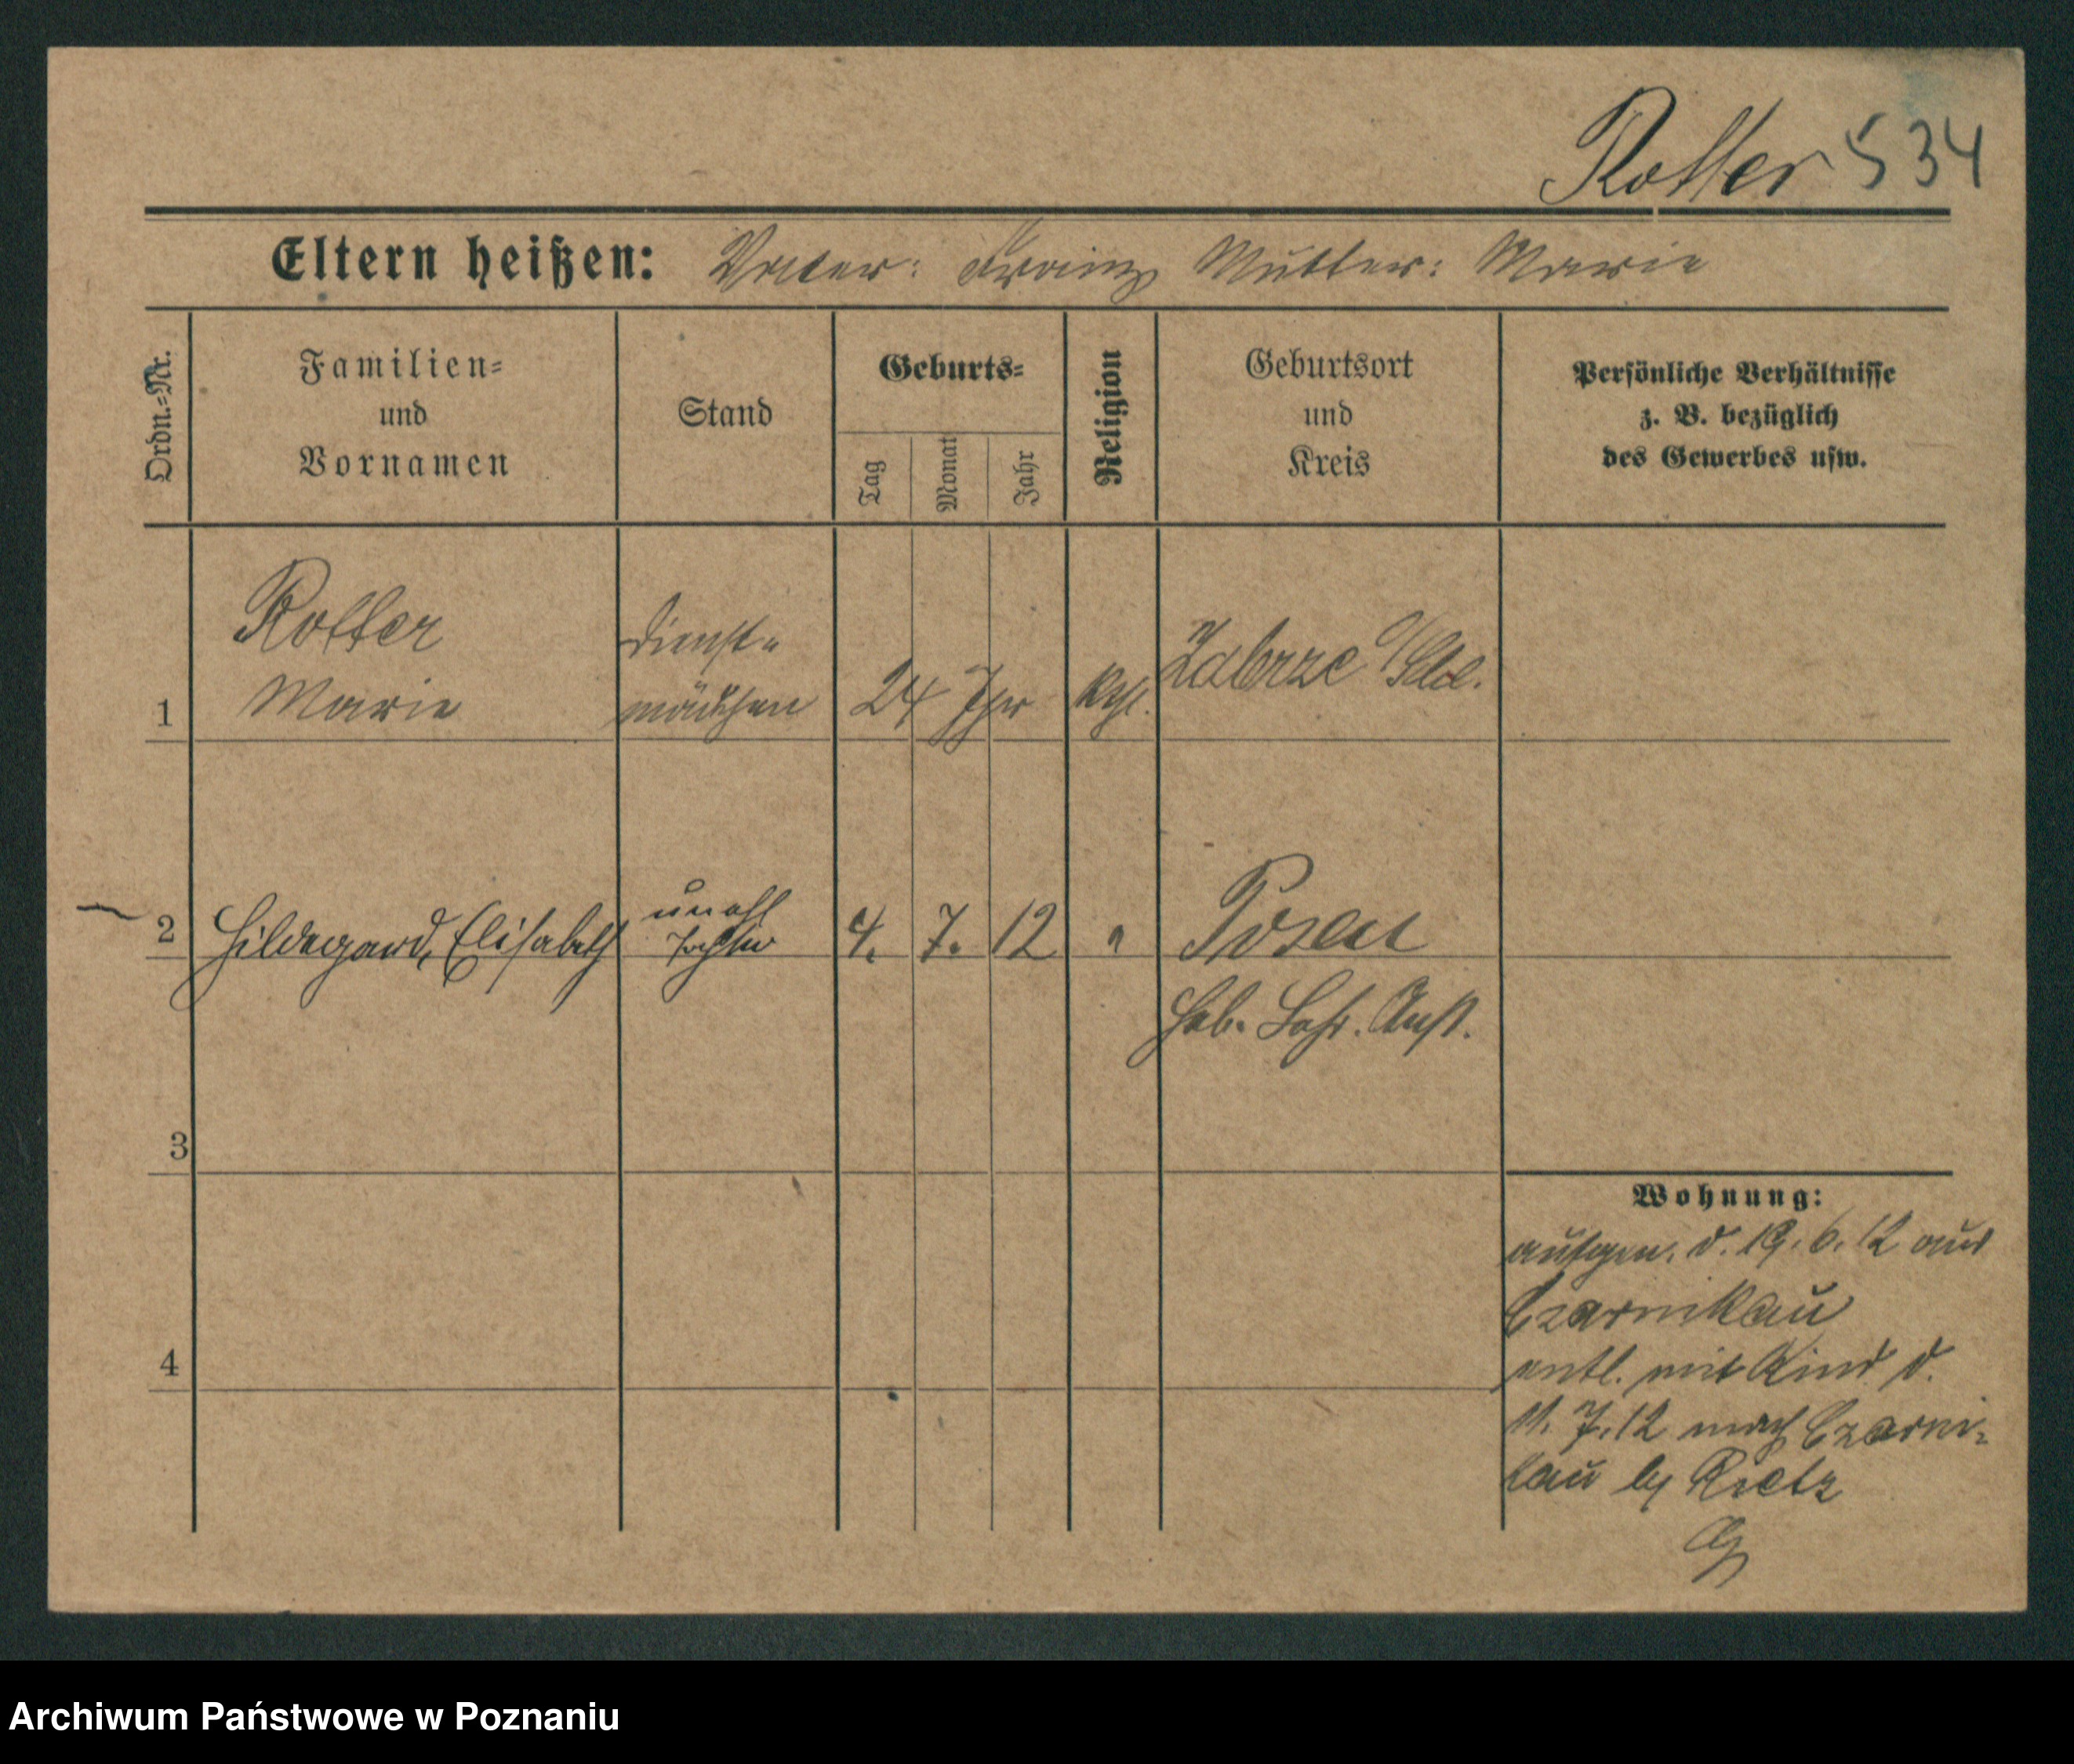 Rotter 534
Eltern heißen: Vater: Franz Mutter: Marie
Ordn.-Nr.
Familien-
und
Vornamen
Stand
Geburts-
Tag
Monat
Jahr
Religion
Geburtsort
und
Kreis
Persönliche Verhältnisse
z. B. bezüglich
des Gewerbes usw.
Rotter
Marie
Dienst-
mädchen
1
24 Jhr
Kth.
Zabrze
2
Hildegard, Elisabeth
unehl
Tochter
4. 7. 12
"
Posen
Heb. Lehr. Anst.
3
4
Wohnung:
aufgen. d. 19. 6. 12 aus
Czarnikau
entl. mit Kind d.
11. 7. 12 nach Czarni-
kau by Rietz
Archiwum Państwowe w Poznaniu